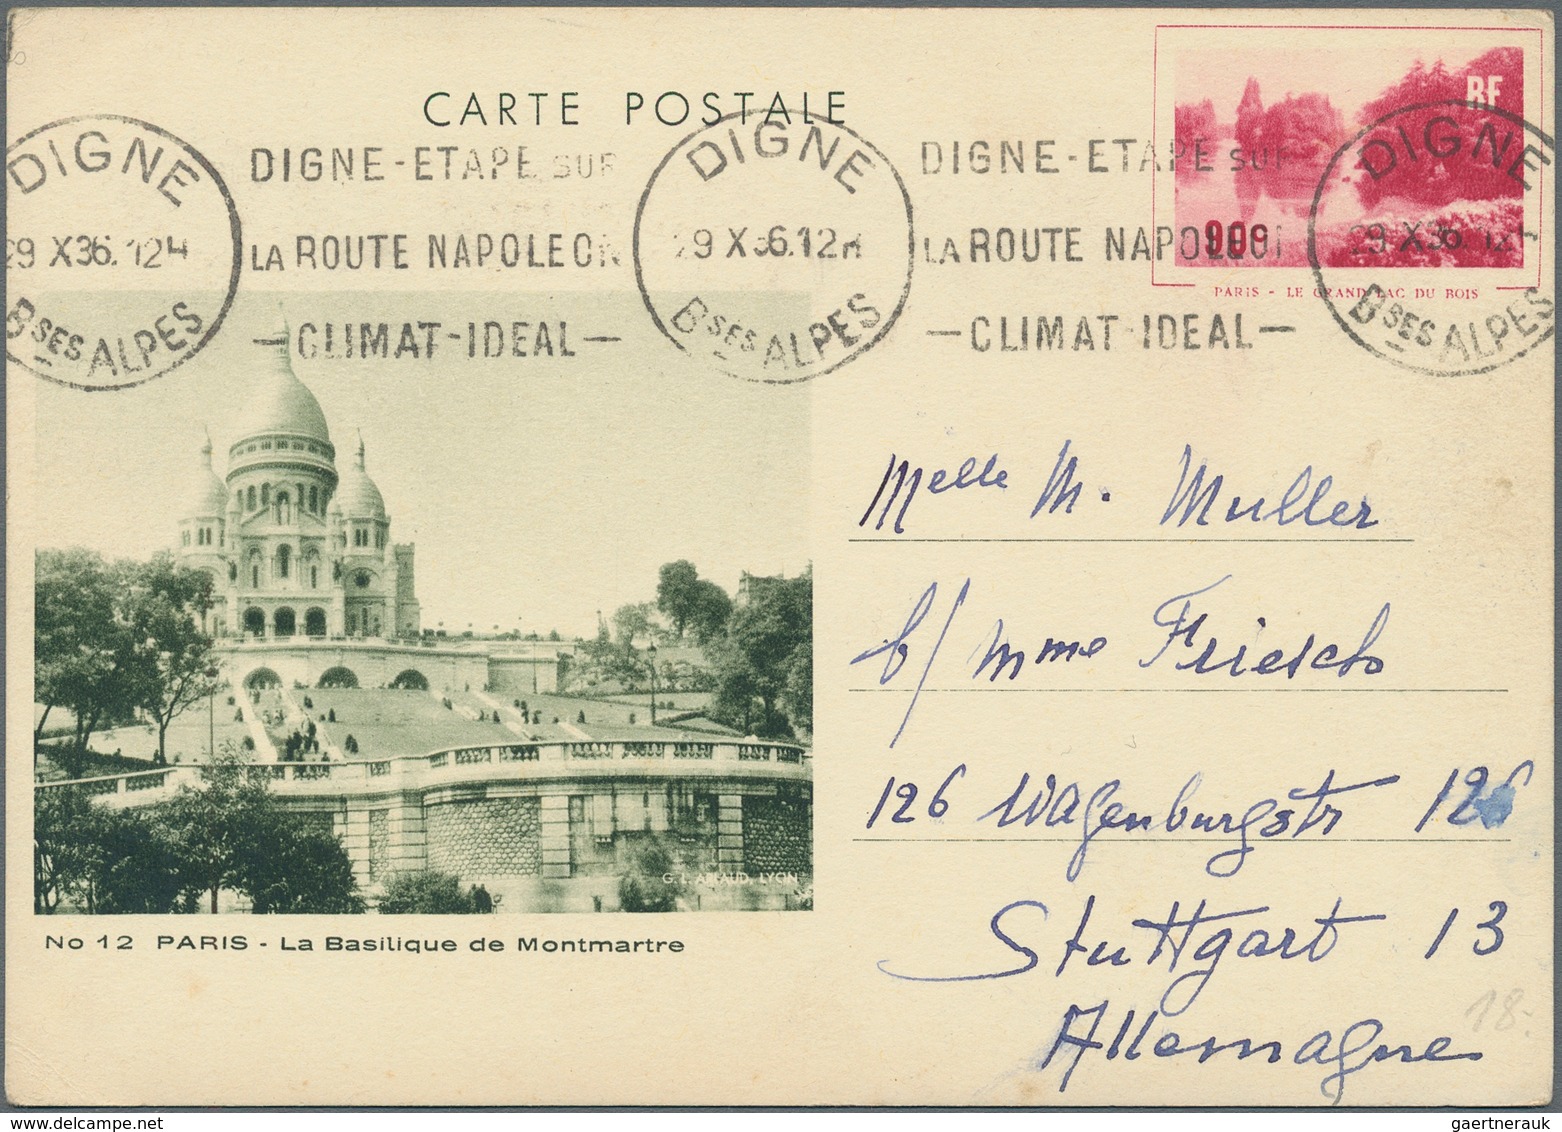 CARTE POSTALE
RF
90c
PARIS - LE GRAND LAC DU BOIS
DIGNE
29 X 36. 12H
Bses ALPES
DIGNE-ETAPE SUR
LA ROUTE NAPOLEON
—CLIMAT-IDEAL—
DIGNE
29 X 36. 12H
Bses ALPES
DIGNE-ETAPE SUR
LA ROUTE NAPOLEON
—CLIMAT-IDEAL—
DIGNE
29 X 36. 12
Bses ALPES
Melle M. Muller
b/ Mme Friesch
126 Wagenburgstr 126
Stuttgart 13
Allemagne
18.-
G. L. ARLAUD, LYON
No 12 PARIS - La Basilique de Montmartre
gaertnerauk @ delcampe.net